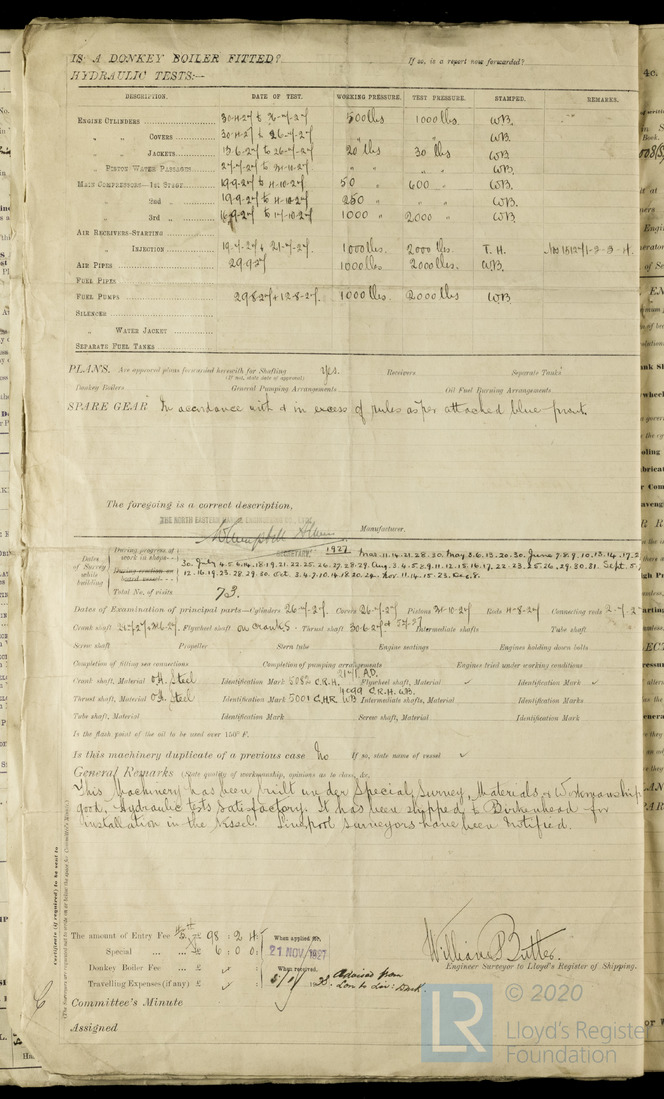 IS A DONKEY BOILER FITTED? If so, is a report now forwarded?
HYDRAULIC TESTS:—
DESCRIPTION. DATE OF TEST. WORKING PRESSURE. TEST PRESSURE. STAMPED. REMARKS.
ENGINE CYLINDERS 500 lbs 1000 lbs. WB.
" " COVERS " " WB.
" " JACKETS 20 lbs 30 lbs WB.
" PISTON WATER PASSAGES " " " " WB.
MAIN COMPRESSORS—1st STAGE 19-9-27 to 11-10-27 50 " 600 " WB.
" 2nd " 19-9-27 to 11-10-27 250 " " " WB.
" 3rd " 1000 " 2000 " WB
AIR RECEIVERS-STARTING
" INJECTION 1000 lbs. 2000 lbs. T. H.
AIR PIPES 29.9.27 1000 lbs. 2000 lbs. WB.
FUEL PIPES
FUEL PUMPS 29.8.27 + 12.8.27. 1000 lbs. 2000 lbs WB
SILENCER
" WATER JACKET
SEPARATE FUEL TANKS
PLANS. Are approved plans forwarded herewith for Shafting Yes. Receivers Separate Tanks
(If not, state date of approval)
Donkey Boilers General Pumping Arrangements Oil Fuel Burning Arrangements
SPARE GEAR In accordance with & in excess of rules as per attached blue print.
The foregoing is a correct description,
THE NORTH EASTERN MARINE ENGINEERING CO., LTD.
Manufacturer.
SECRETARY.
Dates of Survey while building
During progress of work in shops - - 1927 Mar. 11. 14. 21. 28. 30. May 3. 6. 13. 20. 30. June 7. 8. 9. 10. 13. 14. 17. 2
30. July 4. 5. 6. 14. 18. 19. 21. 22. 25. 26. 27. 28. 29. Aug. 3. 4. 5. 8. 9. 11. 12. 15. 16. 17. 22. 23. 25. 26. 29. 30. 31. Sept. 5. 7
During erection on board vessel - - 12. 16. 19. 23. 28. 29. 30. Oct. 3. 4. 7. 10. 14. 18. 20. 24. Nov. 11. 14. 15. 23. Dec. 8.
Total No. of visits 73.
Dates of Examination of principal parts—Cylinders 26-7-27. Covers 26-7-27. Pistons 31-10-27 Rods 11-8-27 Connecting rods
Crank shaft Flywheel shaft on cranks. Thrust shaft 30-6-27 Intermediate shafts Tube shaft
Screw shaft Propeller Stern tube Engine seatings Engines holding down bolts
Completion of fitting sea connections Completion of pumping arrangements Engines tried under working conditions
Crank shaft, Material O.H. Steel Identification Mark 5082 C.R.H. Flywheel shaft, Material ✓ Identification Mark ✓
Thrust shaft, Material O.H. Steel Identification Mark 5001 C.H.R. WB Intermediate shafts, Material Identification Marks
Tube shaft, Material Identification Mark Screw shaft, Material Identification Mark
Is the flash point of the oil to be used over 150° F.
Is this machinery duplicate of a previous case No If so, state name of vessel ✓
General Remarks (State quality of workmanship, opinions as to class, &c.
This Machinery has been built under Special Survey, Materials & Workmanship
good. Hydraulic tests satisfactory. It has been shipped to Birkenhead for
installation in the vessel. Liverpool Surveyors have been notified.
Certificate (if required) to be sent to
(The Surveyors are requested not to write on or below the space for Committee's Minute.)
The amount of Entry Fee £ 98 : 2 : When applied for,
Special £ 6 : 0 : 0 : 21 NOV 1927
Donkey Boiler Fee £ ✓ : When received,
Travelling Expenses (if any) £ ✓ :
William Butler.
Engineer Surveyor to Lloyd's Register of Shipping.
Committee's Minute
Assigned
© 2020
LR
Lloyd's Register
Foundation